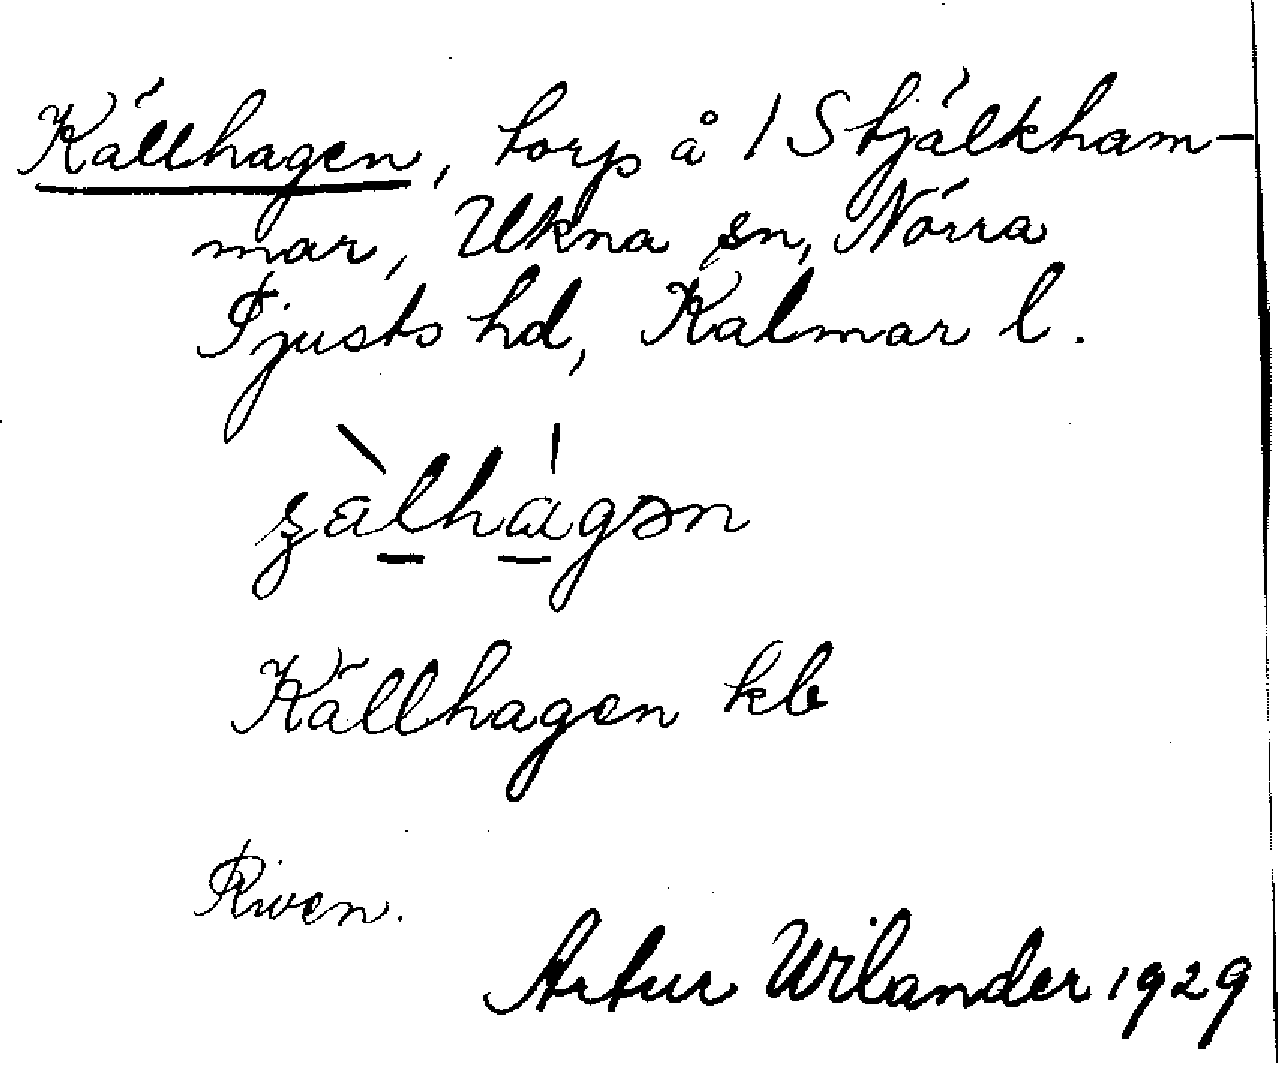 Källhagen, torp å 1 Stjälkham-
mar, Ukna sn, Norra
Tjusts hd, Kalmar l.
ʂàlhágən
Källhagen kb
Riven.
Artur Wilander 1929